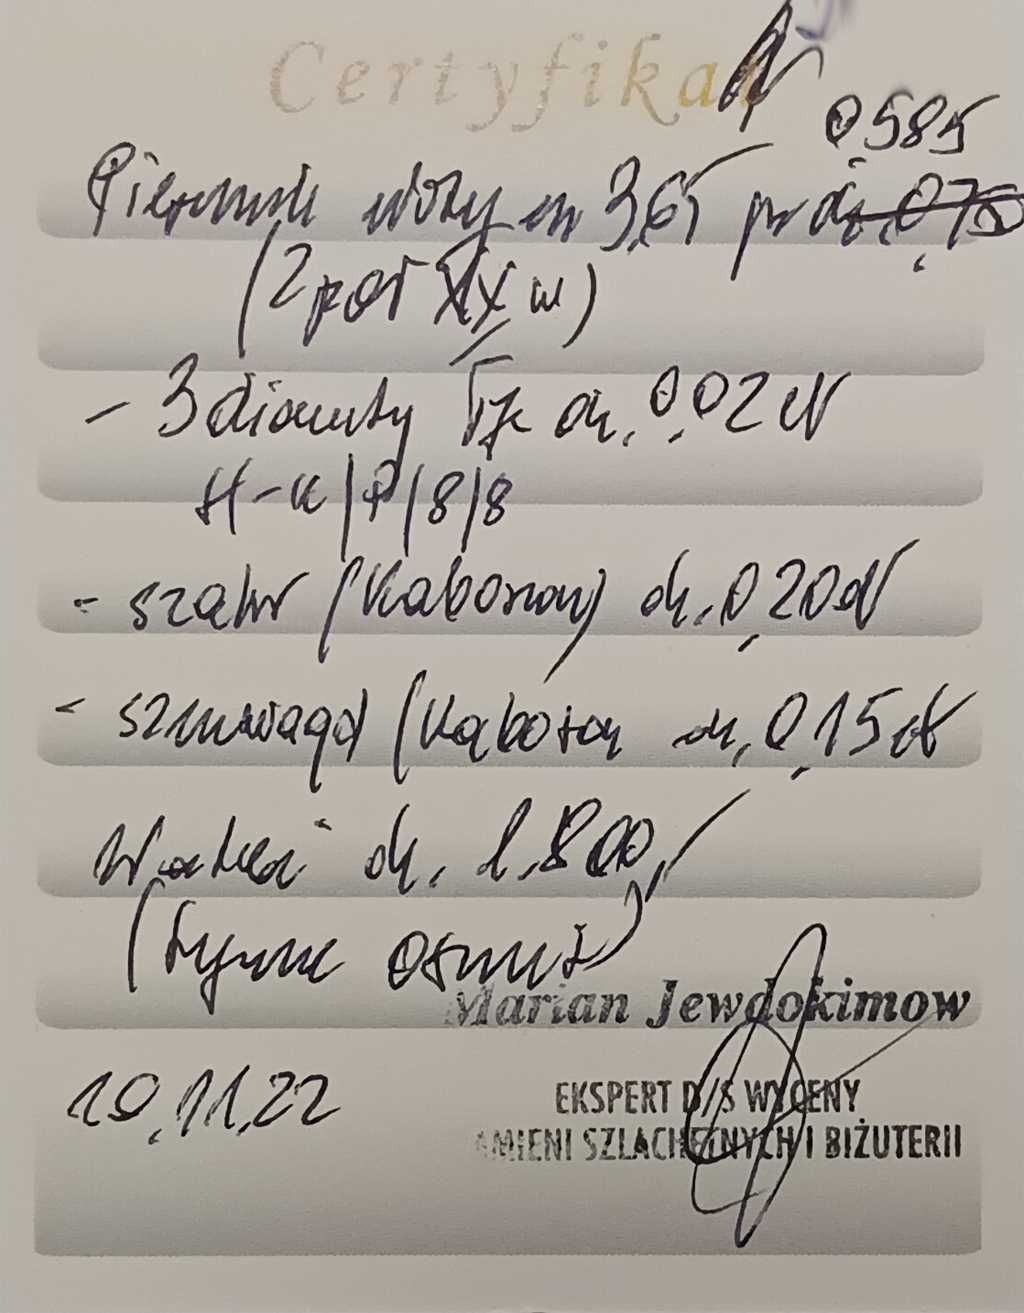 Certyfikat
0,585
Pierścionek złoty m 3,65 pr ok. 0,750
(2 poł XX w)
- 3 diamenty ok. 0,02 ct
H-K/P/8/8
- szafir (kaboszon) ok. 0,20 ct
- szmaragd (kaboszon ok. 0,15 ct
Wartość ok. 1.800,/
(tysiąc osiemset)
Marian Jewdokimow
10.11.22
EKSPERT D/S WYCENY
AMIENI SZLACHETNYCH I BIŻUTERII